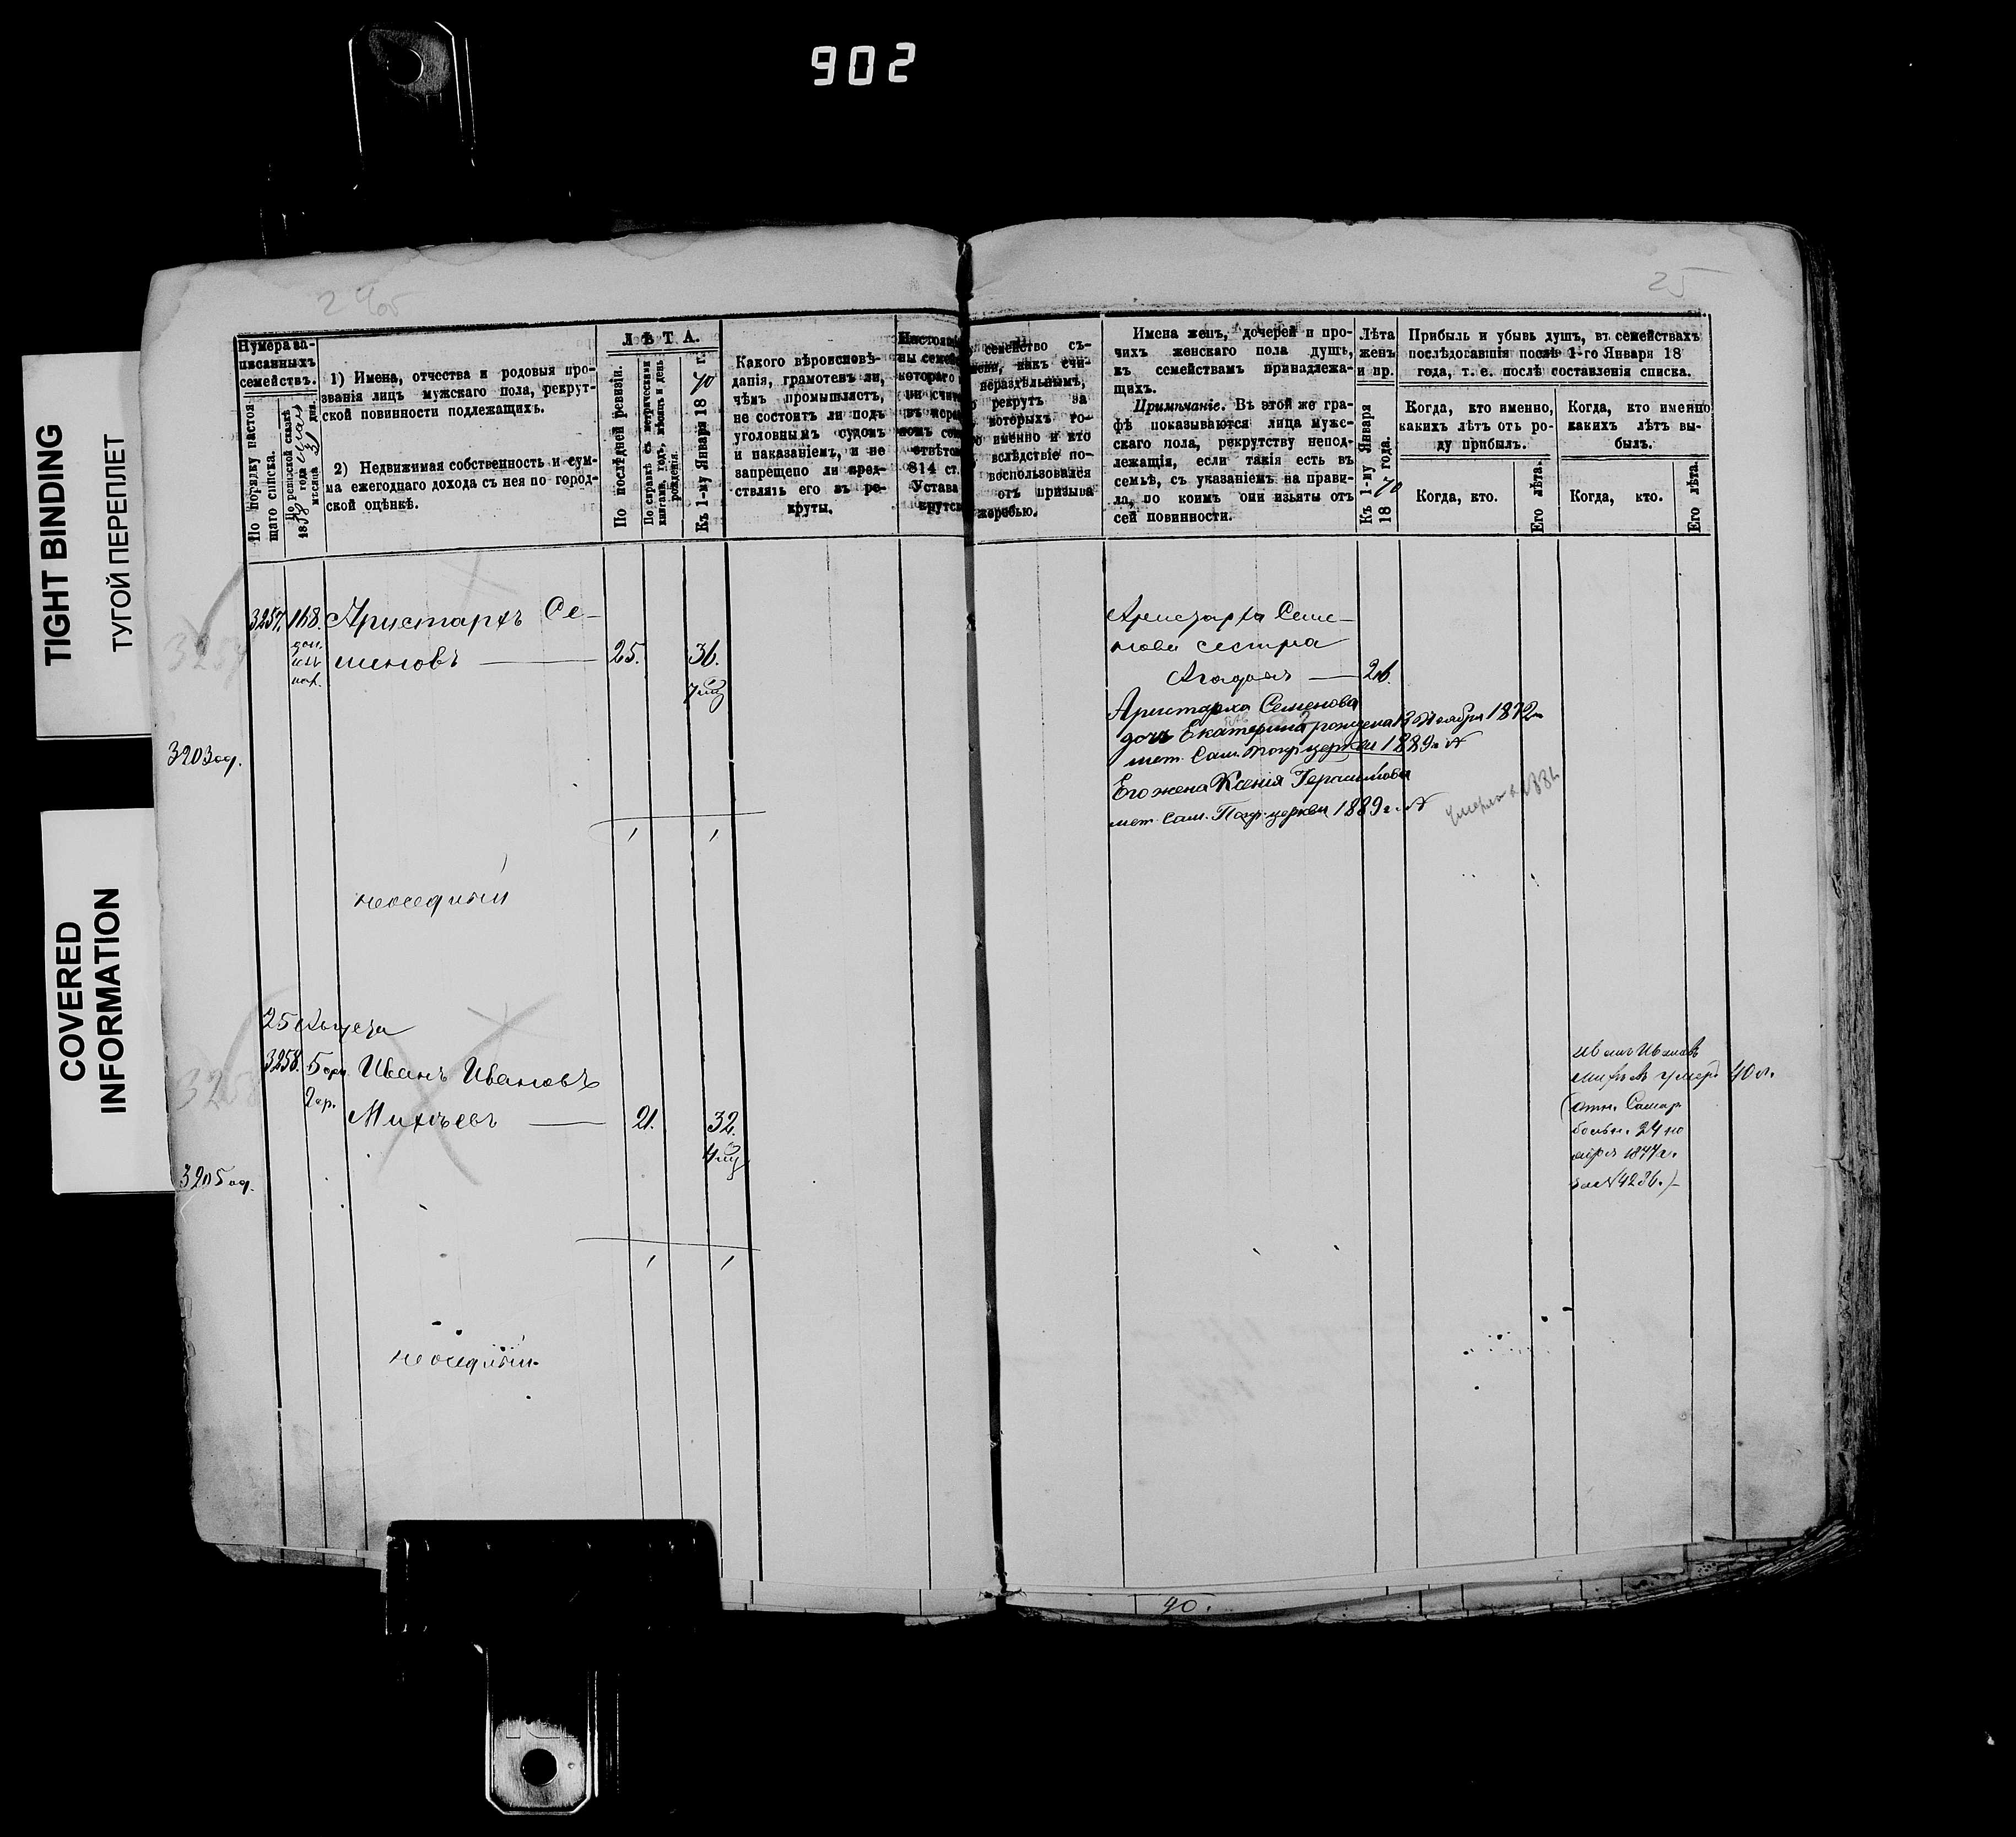 902
TIGHT BINDING
ТУГОЙ ПЕРЕПЛЕТ
COVERED
INFORMATION
25
Нумера за-
писанныхъ
семействъ.
По порядку настоя-
щаго списка.
По ревизской сказкѣ
1858 года
мѣсяца 31 дня.
1) Имена, отчества и родовыя про-
званія лицъ мужскаго пола, рекрут-
ской повинности подлежащихъ.
2) Недвижимая собственность и сум-
ма ежегоднаго дохода съ нея по город-
ской оцѣнкѣ.
ЛѢТА.
По послѣдней ревизіи.
По справкѣ съ метрическими
книгами, годъ, мѣсяцъ и день
рожденія.
Къ 1-му Января 1870 г.
Какого вѣроисповѣ-
данія, грамотенъ ли,
чѣмъ промышляетъ,
не состоитъ ли подъ
уголовнымъ судомъ
и наказаніемъ, и не
запрещено ли пред-
ставлять его въ ре-
круты.
814 ст.
Устава
семейство съ-
нераздѣльнымъ,
рекрутъ за
которыхъ го-
именно и кто
вслѣдствіе по-
воспользовался
отъ призыва
жеребью.
Имена женъ, дочерей и про-
чихъ женскаго пола душъ,
къ семействамъ принадлежа-
щихъ.
Примѣчаніе. Въ этой же гра-
фѣ показываются лица муже-
скаго пола, рекрутству непод-
лежащія, если такія есть въ
семьѣ, съ указаніемъ на прави-
ла, по коимъ они изъяты отъ
сей повинности.
Лѣта
женъ
и пр.
Къ 1-му Января
1870 года.
Прибыль и убыль душъ, въ семействахъ
послѣдовавшія послѣ 1-го Января 18
года, т. е. послѣ составленія списка.
Когда, кто именно,
какихъ лѣтъ отъ ро-
ду прибылъ.
Когда, кто.
Его лѣта.
Когда, кто именно
какихъ лѣтъ вы-
былъ.
Когда, кто.
Его лѣта.
3257. 168. Аристархъ Се-
меновъ 25. 36.
3257
3203
1 1
неоседлый
Аристарха Семе-
нова сестра
26.
Аристарха Семенова
дочь Екатерина рождена 18 Ноября 1872
мет. Сам. Покр. церкви 1889 г.
Его жена Ксенія Герасимова
мет. Сам. Покр. церкви 1889 г.
25 Августа
3258. Иванъ Ивановъ
Михѣевъ 21. 32.
3258
3205
1 1
неоседлый
Иванъ Ивановъ
Михѣевъ умеръ 40 л.
(отн. Самар.
больн. 24 но
ября 1877 г.
за № 4236.)
40.